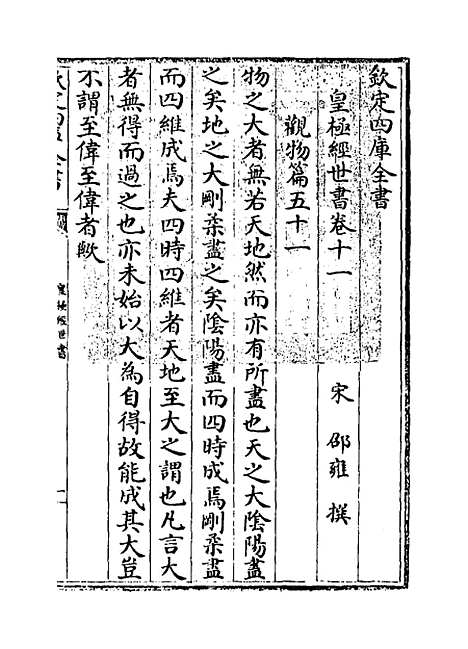 欽定四庫全書
皇極經世書卷十一
宋 邵雍 撰
觀物篇五十一
物之大者無若天地然而亦有所盡也天之大陰陽盡
之矣地之大剛柔盡之矣陰陽盡而四時成焉剛柔盡
而四維成焉夫四時四維者天地至大之謂也凡言大
者無得而過之也亦未始以大為自得故能成其大豈
不謂至偉至偉者歟
欽定四庫全書
皇極經世書